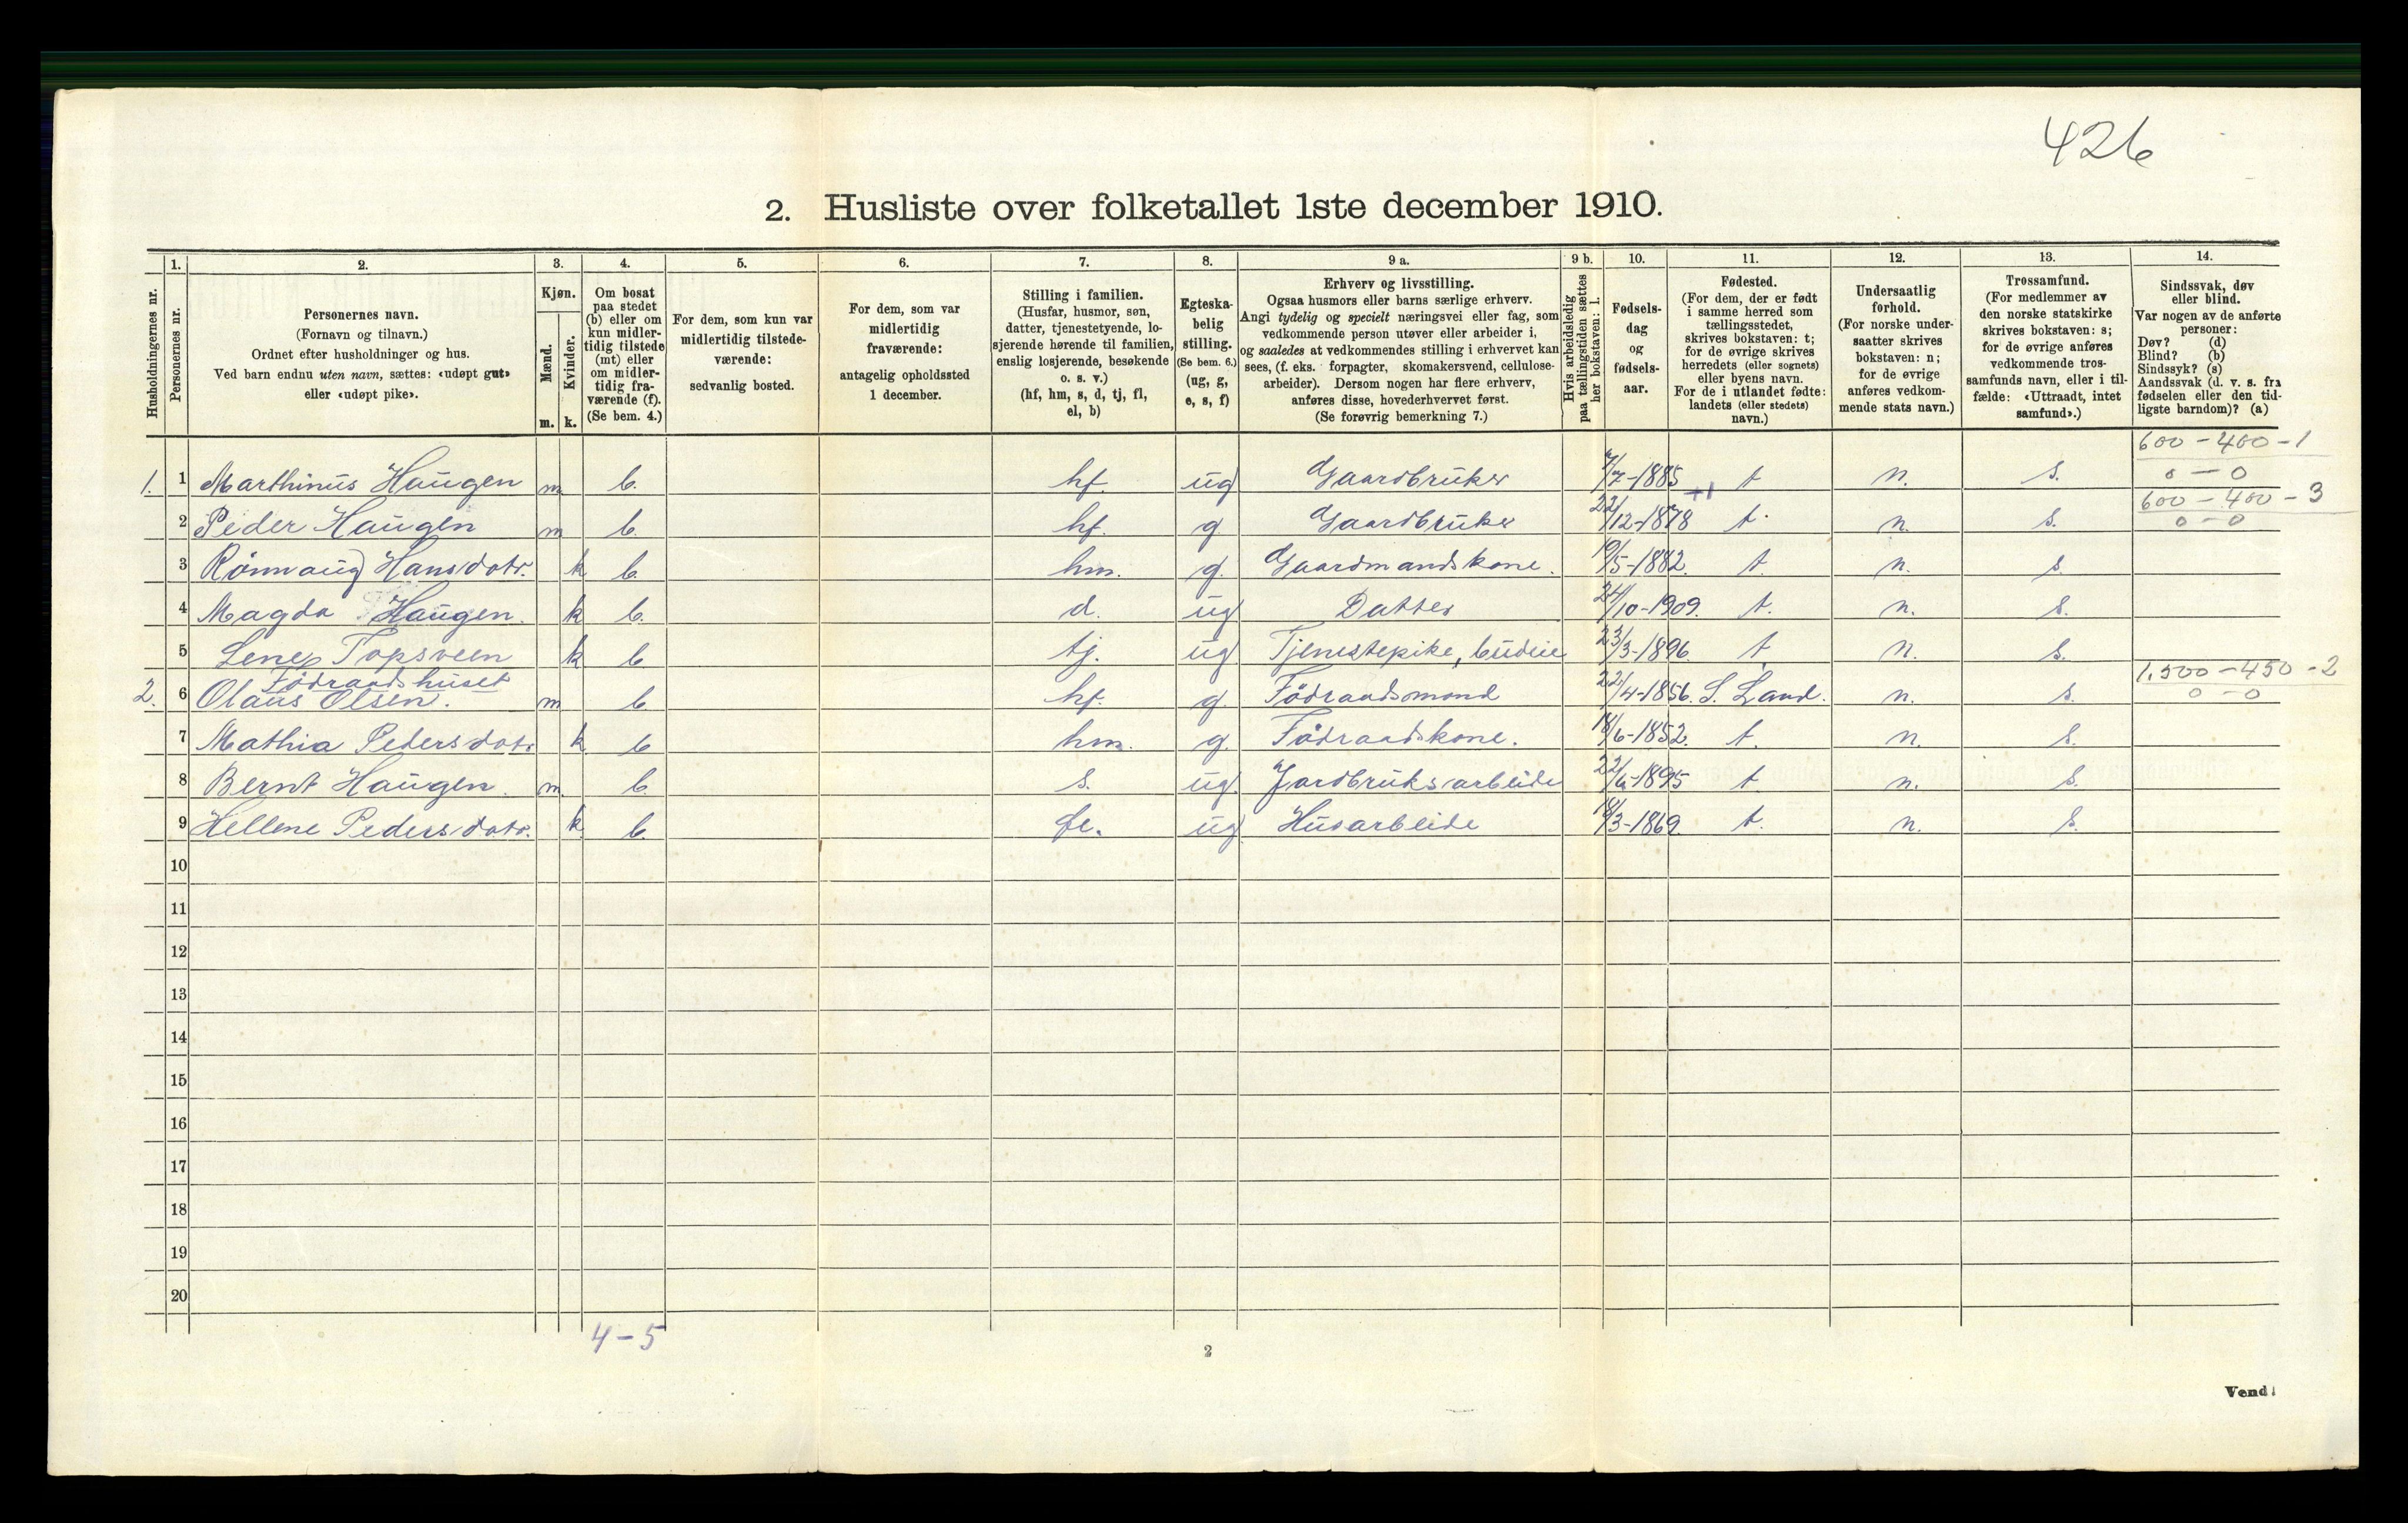 426
2. Husliste over folketallet 1ste december 1910.
Husholdningernes nr.
1. Personernes nr.
2. Personernes navn.
(Fornavn og tilnavn.)
Ordnet efter husholdninger og hus.
Ved barn endnu uten navn, sættes: «udøpt gut»
eller «udøpt pike».
3. Kjøn.
Mænd. m.
Kvinder. k.
4. Om bosat
paa stedet
(b) eller om
kun midler-
tidig tilstede
(mt) eller
om midler-
tidig fra-
værende (f).
(Se bem. 4.)
5. For dem, som kun var
midlertidig tilstede-
værende:
sedvanlig bosted.
6. For dem, som var
midlertidig
fraværende:
antagelig opholdssted
1 december.
7. Stilling i familien.
(Husfar, husmor, søn,
datter, tjenestetyende, lo-
sjerende hørende til familien,
enslig losjerende, besøkende
o. s. v.)
(hf, hm, s, d, tj, fl,
el, b)
8. Egteska-
belig
stilling.
(Se bem. 6.)
(ug, g,
e, s, f)
9 a. Erhverv og livsstilling.
Ogsaa husmors eller barns særlige erhverv.
Angi tydelig og specielt næringsvei eller fag, som
vedkommende person utøver eller arbeider i,
og saaledes at vedkommendes stilling i erhvervet kan
sees, (f. eks. forpagter, skomakersvend, cellulose-
arbeider). Dersom nogen har flere erhverv,
anføres disse, hovederhvervet først.
(Se forøvrig bemerkning 7.)
9 b. Hvis arbeidsledig
paa tællingstiden sættes
her bokstaven: l.
10. Fødsels-
dag
og
fødsels-
aar.
11. Fødested.
(For dem, der er født
i samme herred som
tællingsstedet,
skrives bokstaven: t;
for de øvrige skrives
herredets (eller sognets)
eller byens navn.
For de i utlandet fødte:
landets (eller stedets)
navn.)
12. Undersaatlig
forhold.
(For norske under-
saatter skrives
bokstaven: n;
for de øvrige
anføres vedkom-
mende stats navn.)
13. Trossamfund.
(For medlemmer av
den norske statskirke
skrives bokstaven: s;
for de øvrige anføres
vedkommende tros-
samfunds navn, eller i til-
fælde: «Uttraadt, intet
samfund».)
14. Sindssvak, døv
eller blind.
Var nogen av de anførte
personer:
Døv? (d)
Blind? (b)
Sindssyk? (s)
Aandssvak (d. v. s. fra
fødselen eller den tid-
ligste barndom)? (a)
600 - 400 - 1
1. 1 Marthinus Haugen m b. hf. ug Gaardbruker 7/7-1885 t n. s. 0 - 0
+1 600 - 400 - 3
2 Peder Haugen m b. hf. g. Gaardbruker 22/12-1878 t. n. s. 0 - 0
3 Rønnaug Hansdotr. k b. hm. g. Gaardmandskone. 19/5-1882. t. n. s.
4 Magda Haugen. k b. d. ug Datter 24/10-1909. t. n. s.
5 Lene Topsveen k b. tj. ug Tjenestepike, budeie 23/3-1896. t n. s.
Födraadshuset 1.500 - 450 - 2
2. 6 Olaus Olsen. m b. hf. g. Födraadsmand 22/4-1856. S. Land. n. s. 0 - 0
7 Mathia Pedersdotr k b hm. g. Födraadskone. 18/6-1852. t. n. s.
8 Bernt Haugen. m. b. s. ug. Jordbruksarbeide 22/6-1895 t n. s.
9 Hellene Pedersdotr. k b. fl. ug Husarbeide 18/3-1869. t. n. s.
10
11
12
13
14
15
16
17
18
19
20
4 - 5
2
Vend!